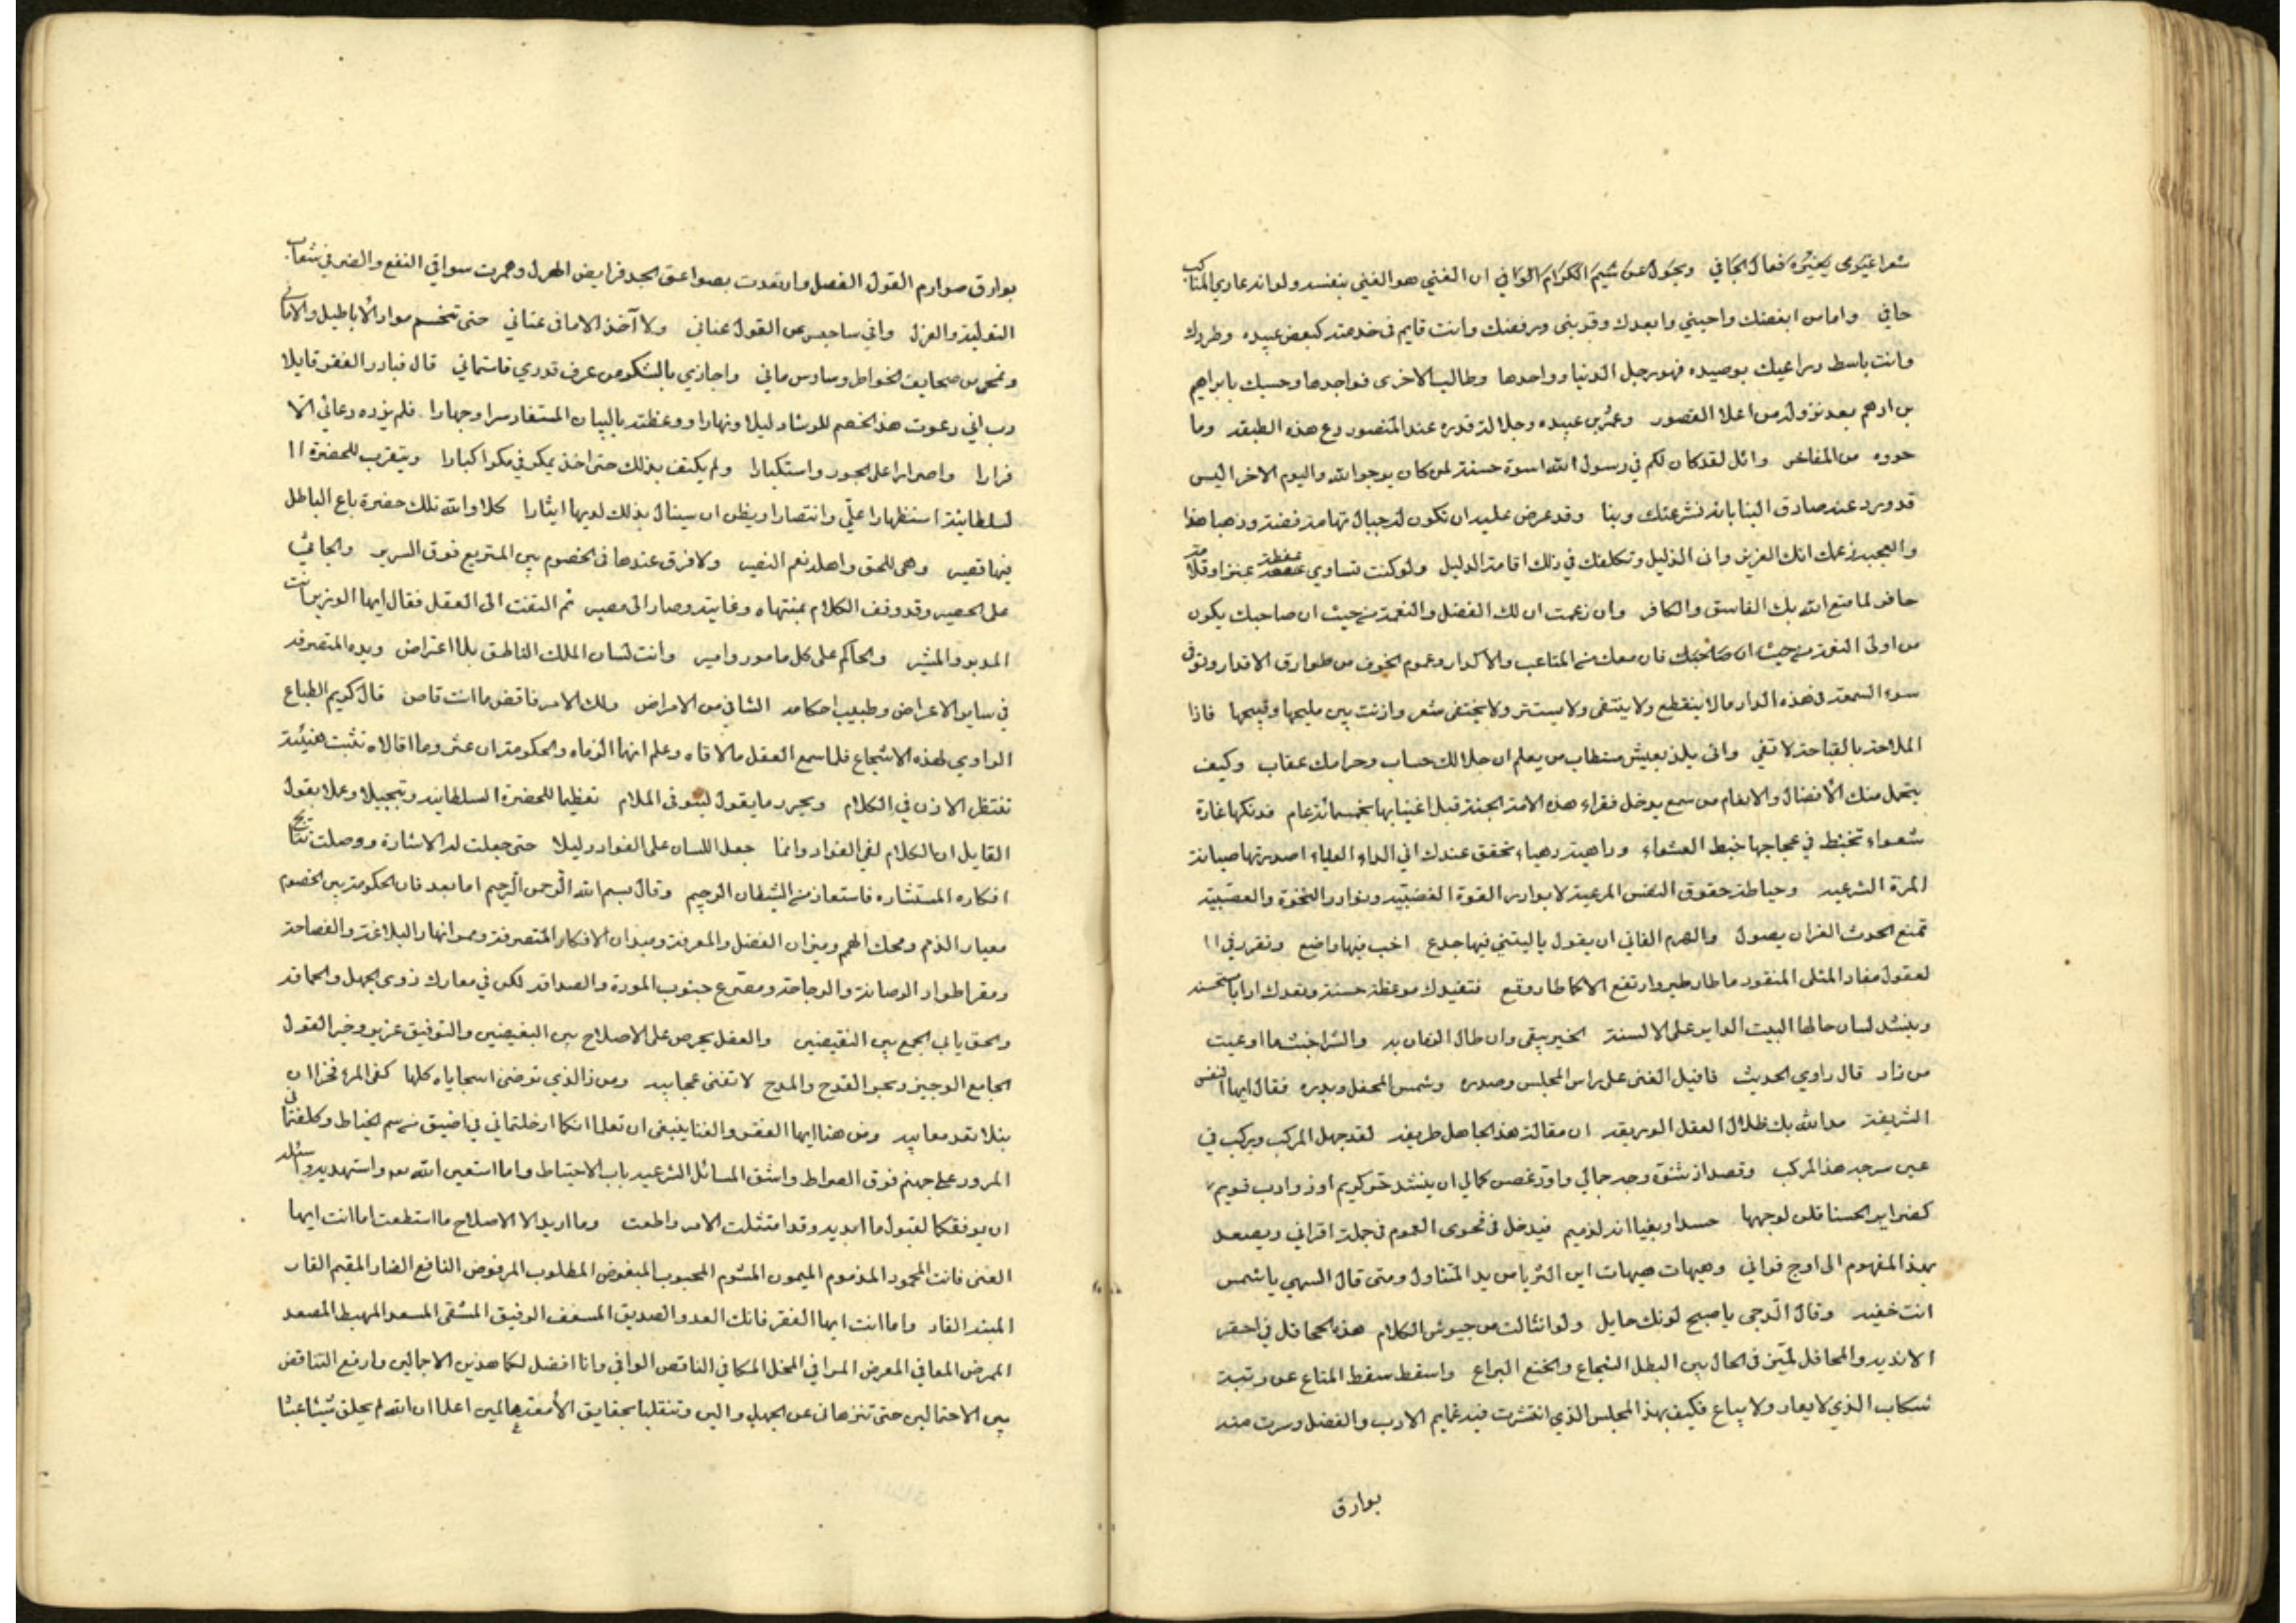 شعرا غيري يغيره فعال الجاني ويحول عن شيم الكرام الواني ان الغني هو الغني بنفسه ولو انه عاري المناكب
حافي واما من ابغضك واحبني وابعدك وقربني ورفضك وانت قايم في خدمته كبعض عبيده وطردك
وانت باسط دراعيك بوصيده فهو رجل الدنيا وواحدها وطالب الاخرى فواجدها وحسبك بابراهيم
بن ادهم بعد نزوله من اعلا القصور وعمر بن عبيده وجلالة قدره عند المنصور دع هذه الطبقه وما
حووه من المفاخر واتل لقد كان لكم في رسول الله اسوة حسنة لمن كان يرجوا الله واليوم الاخر اليس
قد ورد عنه صادق النبا بانه نشر عنك ونبا وقد عرض عليه ان تكون له جبال تهامة فضة وذهبا هذا
والعجب زعمك انك العزيز واني الذليل وتكلفك في ذلك اقامة الدليل ولو كنت تساوي عفطة عنز او قلامة
حافر لما متع الله بك الفاسق والكافر وان زعمت ان لك الفضل والنعمة من حيث ان صاحبك يكون
من اولى النعمة من حيث ان صاحبك فان معك من المتاعب والاكدار وعموم الخوف من طوارق الاقدار وتوقي
سوء السمعة في هذه الدار مالا ينقطع ولا ينتفى ولا يستتر ولا يختفى شعر وازنت بين مليحها وقبيحها فاذا
الملاحة بالقباحة لا تفي واني يلذ بعيش مستطاب من يعلم ان حلالك حساب وحرامك عقاب وكيف
يتحمل منك الأفضال والانعام من سمع بدخل فقراء هذه الامة الجنة قبل اغنيايها بخمسمائة عام فدونكها غارة
شعواء تختبط في عجاجها خبط العشواء وداهية دهياء تحقق عندك اني الداء العياء اصدرتها صيانة
المرة الشرعيه وحياطة حقوق النفس المرعية لا بوادر القوة الغضبيه ونوادر النخوة والعصبية
تمنع الحدث الغر ان يصول والهرم الفاني ان يقول ياليتني فيها جدع اخب فيها واضع وتقرر في ا
لعقول مفاد المثل المنقود ما طار طير وارتفع الا كما طار وقع فتفيدك موعظة حسنة وتفدك ادابا مستحسنه
وينشد لسان حالها البيت الداير على الالسنة الخير يبقى وان طال الزمان به والشر اخبث ما اوعيت
من زاد قال راوي الحديث فاقبل الغنى على راس المجلس وصدره وشمس المحفل وبدره فقال ايها النفس
الشريفة مد الله بك ظلال العقل الوريقه ان مقالة هذا الجاهل طريفه لقد جهل المركب ويركب في
عين سرجه هذا المركب وقصد اذ شنق وجه جمالي واود غصن كمالي ان ينشد حر كريم اوذو ادب قويم
كضراير الحسنا قلن لوجهها حسدا وبغيا انه لذميم فيدخل في فحوى العموم في جملة اقراني ويصعد
بهذا المفهوم الى اوج قراني وهيهات هيهات اين الثريا من يد المتناول ومتى قال السهي يا شمس
انت خفيه وقال الدجى يا صبح لونك حايل ولو انثالت من جيوش الكلام هذه الجحافل في احقر
الانديه والمحافل لميز في الحال بين البطل الشجاع والخنع اليراع واسقط سقط المتاع عن رتبة
سكاب الذي لا يعار ولا يباع فكيف بهذا المجلس الذي انتشرت فيه غمايم الادب والفضل وسرت منه
بوارق
بوارق صوارم القول الفصل وارتعدت بصواعق الجد فرايض الهزل وهمرت سواقي النفع والضر في شعاب
التولية والعزل واني ساحبس من القول عناني ولا آخذ الامان عناني حتى تنحسم مواد الأباطيل والاماني
وتمحى من صحايف الخواطر وساوس ماني واجازي بالشكر من عرف قدري فاستماني قال فبادر الفقر قايلا
رب اني دعوت هذا الخصم للرشاد ليلا ونهارا ووعظته بالبيان المستفاد سرا وجهارا فلم يزده دعائي الا
فرارا واصرارا على الجور واستكبارا ولم يكتف بذلك حتى اخذ يمكر في مكرا كبارا ويتقرب للحضرة ا
لسلطانية استظهارا علي وانتصارا ويظن ان سينال بذلك لديها ايثارا كلا والله تلك حضرة باع الباطل
فيها قصير وهي للحق واهله نعم النصير ولا فرق عندها في الخصوم بين المتربع فوق السرير والجاثي
على الحصير وقد وقف الكلام بمنتهاه وغايته وصار الى مصير ثم التفت الى العقل فقال ايها الوزير انت
المدبر والمشير والحاكم على كل مامور وامير وانت لسان الملك الناطق بلا اعتراض ويده المتصرفه
في ساير الاعراض وطبيب احكامه الشافي من الامراض ولك الامر فاقض ما انت قاض قال كريم الطباع
الراوي لهذه الاسجاع فلما سمع العقل ما لاقاه وعلم انهما الزماه والحكومة ان عثر وما اقالاه تثبت هنيئة
تنتظر الاذن في الكلام ويحرر ما يقول ليتوقى الملام تعظيما للحضرة السلطانيه وتبجيلا وعملا بقول
القايل ان الكلام لفي الفواد وانما جعل اللسان على الفواد دليلا حتى جعلت له الاشارة ووصلت نتايج
افكاره المستشاره فاستعاذ من الشيطان الرجيم وقال بسم الله الرحمن الرحيم اما بعد فان الحكومة بين الخصوم
معيار الذمم ومحك الهمم وميزان الفضل والمعرفة وميدان الافكار المتصرفة ومجرا انهار البلاغة والفصاحة
ومقر اطواد الرصانة والرجاحة ومصرع جنوب المودة والصداقه لكن في معارك ذوي الجهل والحماقه
والحق يابى الجمع بين النقيضين والعقل يحرص على الاصلاح بين البغيضين والتوفيق عزيز وخير القول
الجامع الوجيز وبحر القدح والمدح لا تفنى عجايبه ومن ذا الذي ترضى سجاياه كلها كفى المرء فخرا ان
نبلا تعد معايبه ومن هنا ايها الفقر والغنا ينبغي ان تعلما انكما ادخلتماني في اضيق من سم الخياط وكلفتماني
المرور على جهنم فوق الصراط واشق المسائل الشرعيه باب الاحتياط وانا استعين الله واستهديه واسئله
ان يوفقكما لقبول ما ابديه وقد امتثلت الامر واطعت وما اريد الا الاصلاح ما استطعت اما انت ايها
الغنى فانت المحمود المذموم الميمون المشوم المحبوب المبغوض المطلوب المرفوض النافع الضار المقيم القار
المبتد الفاد واما انت ايها الفقر فانك العدو الصديق المسعف الرفيق المشقى المسعد المهبط المصعد
الممرض المعافي المعرض المرافي المخل المكافي الناقص الوافي وانا افضل لكما هذين الاجمالين وارفع التناقض
بين الاحتمالين حتى تتنزهان عن الجهل والمين وتنقلبا بحقايق الأمتعة عالمين اعلما ان الله لم يخلق شيئا عبثا